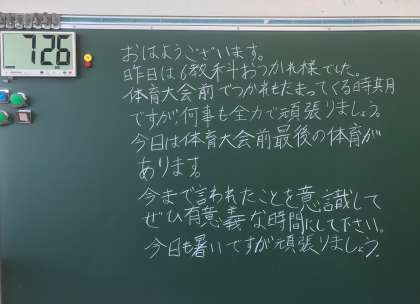 7:26
おはようございます。
昨日は6教科おつかれ様でした。
体育大会前でつかれもたまってくる時期
ですが、何事も全力で頑張りましょう。
今日は体育大会前最後の体育が
あります。
今まで言われたことを意識して
ぜひ有意義な時間にして下さい。
今日も暑いですが頑張りましょう。